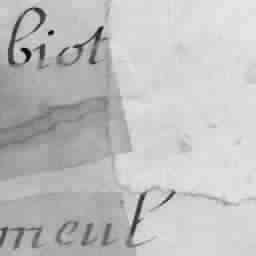 biot
meul